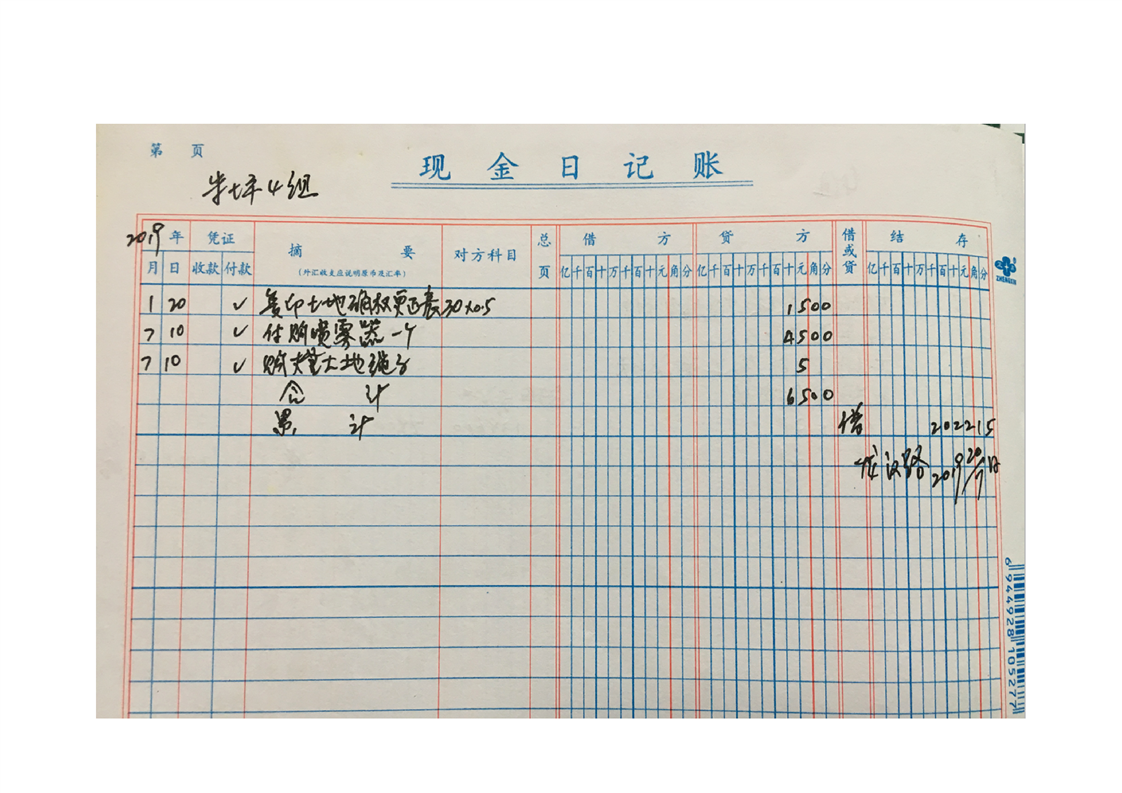 第 页
现金日记账
坪4组
2019年 凭证 摘要 对方科目 总页 借方 贷方 借或贷 结存
月 日 收款 付款 (外汇收支应说明原币及汇率) 亿千百十万千百十元角分 亿千百十万千百十元角分 亿千百十万千百十元角分
ZHENGXIN
1 20 ✓ 复印土地确权更正表30×0.5 1500
7 10 ✓ 付购喷雾器一个 4500
7 10 ✓ 购大土地绳子 5
合计 6500
累计 借 202215
2019 20/7日
6944928105277